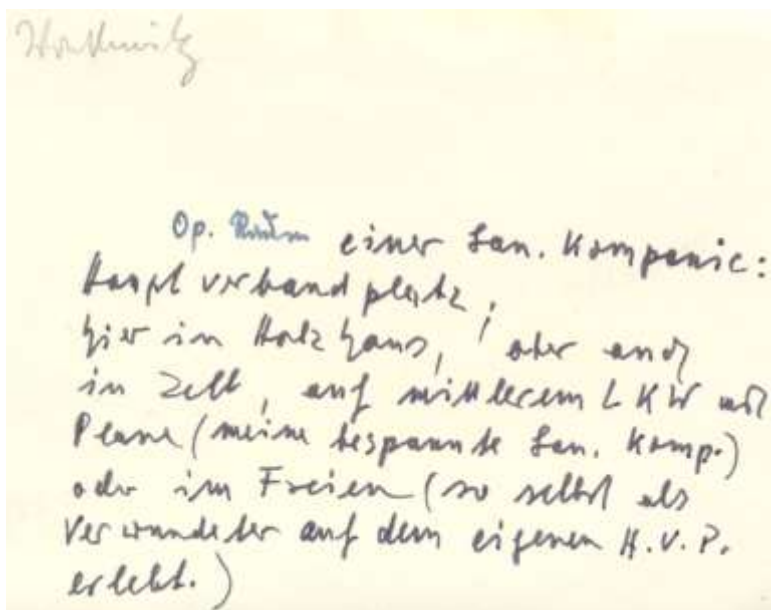 Op. Raum einer San. Kompanie:
Hauptverbandplatz,
hier in Holzhaus, aber auch
in Zelt, auf mittlerem LKW mit
Plane (meine bespannte San. Komp.)
oder im Freien (so selbst als
Verwundeter auf dem eigenen H.V.P.
erlebt.)